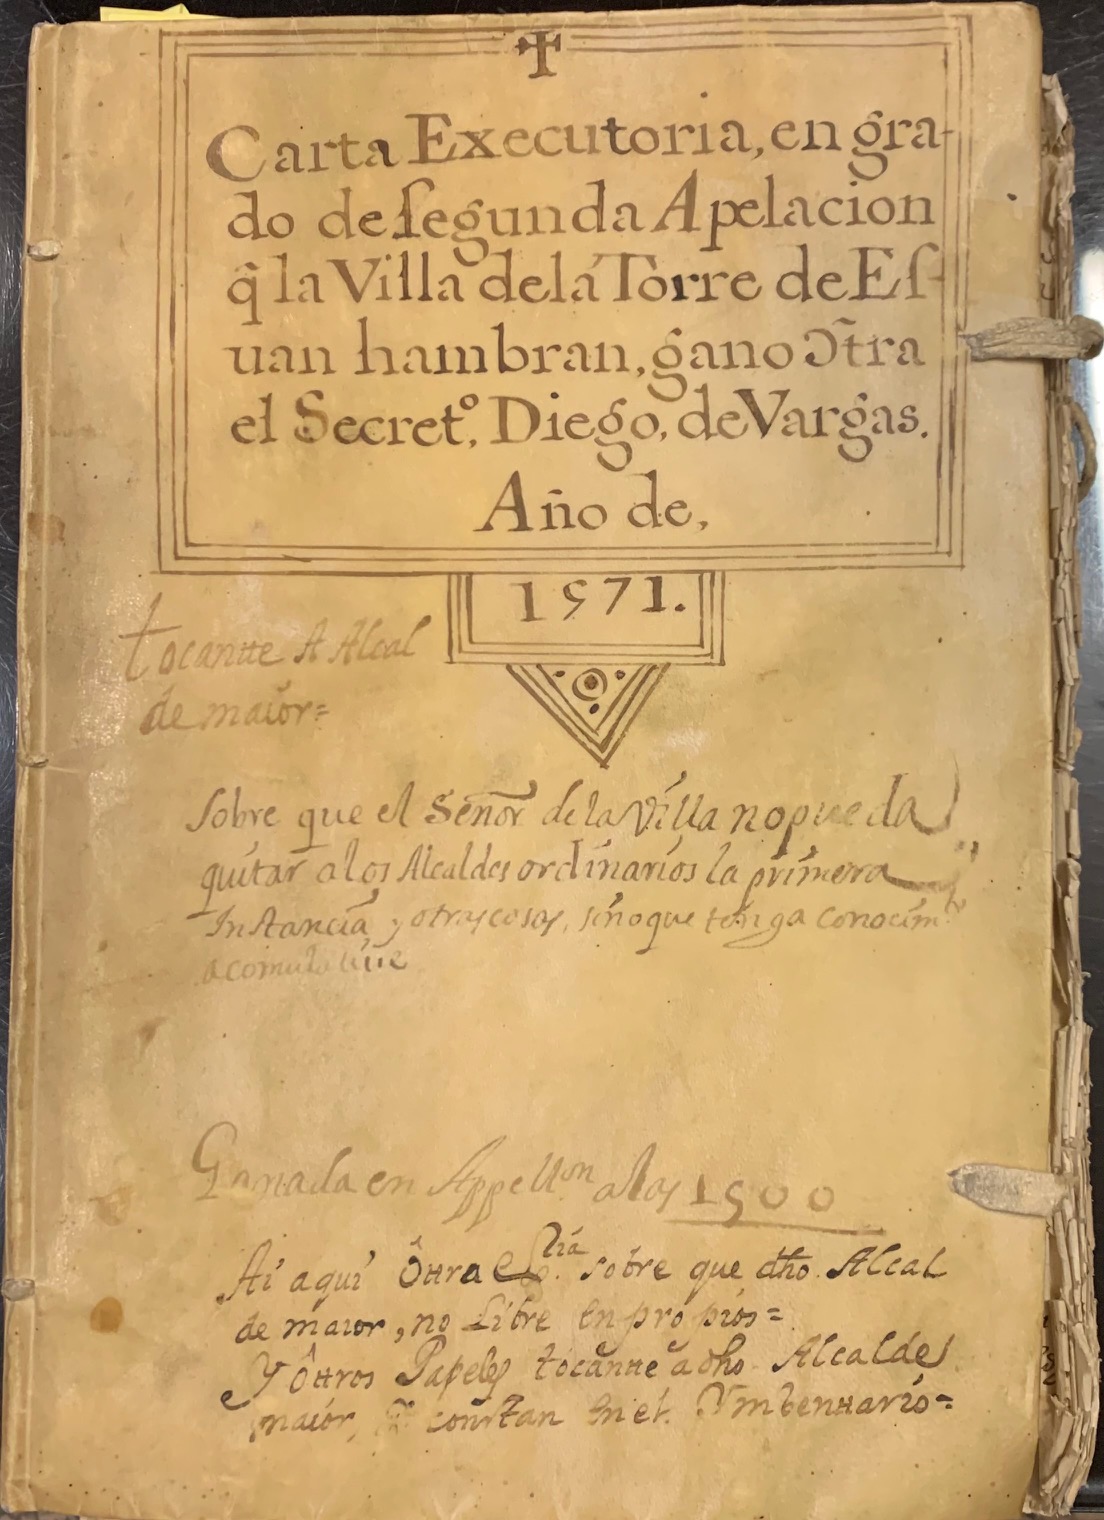 Carta Executoria, en gra-
do de ſegunda Apelacion
q̃ la Villa dela Torre de Eſ-
uan hambran, gano Ↄt̃ra
el Secretº. Diego, de Vargas.
Año de,
1571.
tocantte A Alcal
de maior=
Sobre que el Señor de la Villa no pueda
quitar alos Alcaldes ordinarios la primera
Instancia y otras cosas, sino que tenga conocimto
acomulatiue
Ganada en Appellon a las 1500
Ai aqui Ôttra sobre que dho. Alcal
de maior, no Libre en propios=
Y Ôttros Papeles tocantte a dho Alcalde
maior, constan en el Ymbenttario=